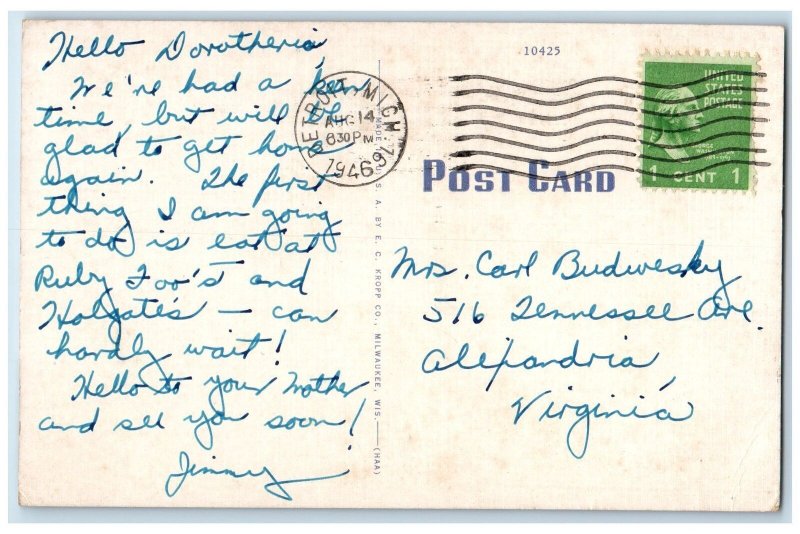 Hello Dorotheria,
We're had a keen
time, but will be
glad to get home
again. The first
thing I am going
to do is eat at
Ruby Foo's and
Holgate's — can
hardly wait!
Hello to your Mother
and see you soon!
Jimmy
10425
DETROIT, MICH. 
AUG 14
630 PM
1946
UNITED
STATES
POSTAGE
GEORGE
1 CENT 1
POST CARD
MADE IN U. S. A. BY E. C. KROPP CO., MILWAUKEE, WIS. (HAA)
Mrs. Carl Budwesky
516 Tennessee Ave.
Alexandria,
Virginia